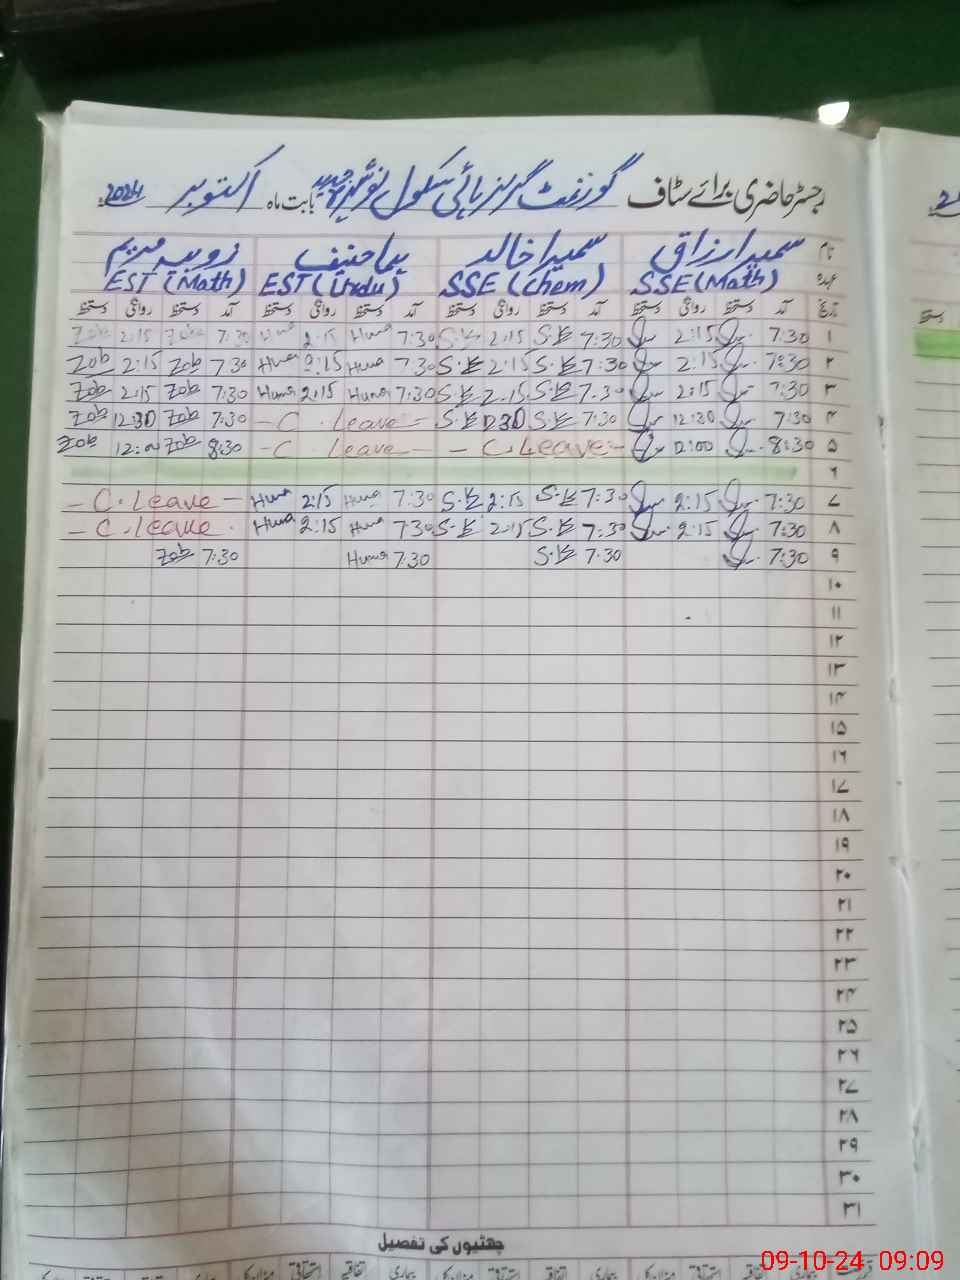 رجسٹر حاضری برائے سٹاف گورنمنٹ گرلز ہائی سکول بابت ماہ اکتوبر 2024
نام سمیرا رزاق سمیرا خالد ہما حنیف زوبیہ مریم
عہدہ SSE (Math) SSE (Chem) EST (Urdu) EST (Math)
تاریخ آمد دستخط روانگی دستخط آمد دستخط روانگی دستخط آمد دستخط روانگی دستخط آمد دستخط روانگی دستخط
۱ 7:30 2:15 7:30 S.K 2:15 S.K 7:30 Huma 2:15 Huma 7:30 Zob 2:15 Zob
۲ 7:30 2:15 7:30 S.K 2:15 S.K 7:30 Huma 2:15 Huma 7:30 Zob 2:15 Zob
۳ 7:30 2:15 7:30 S.K 2:15 S.K 7:30 Huma 2:15 Huma 7:30 Zob 2:15 Zob
۴ 7:30 12:30 7:30 S.K 12:30 S.K - C. Leave - 7:30 Zob 12:30 Zob
۵ 8:30 12:00 - C. Leave - - C Leave - 8:30 Zob 12:00 Zob
۶
۷ 7:30 2:15 7:30 S.K 2:15 S.K 7:30 Huma 2:15 Huma - C. Leave -
۸ 7:30 2:15 7:30 S.K 2:15 S.K 7:30 Huma 2:15 Huma - C. Leave -
۹ 7:30 7:30 S.K 7:30 Huma 7:30 Zob
۱۰
۱۱
۱۲
۱۳
۱۴
۱۵
۱۶
۱۷
۱۸
۱۹
۲۰
۲۱
۲۲
۲۳
۲۴
۲۵
۲۶
۲۷
۲۸
۲۹
۳۰
۳۱
چھٹیوں کی تفصیل
بیماری اتفاقیہ استحقاقی میزان کل بیماری اتفاقیہ استحقاقی میزان کل
09-10-24 09:09